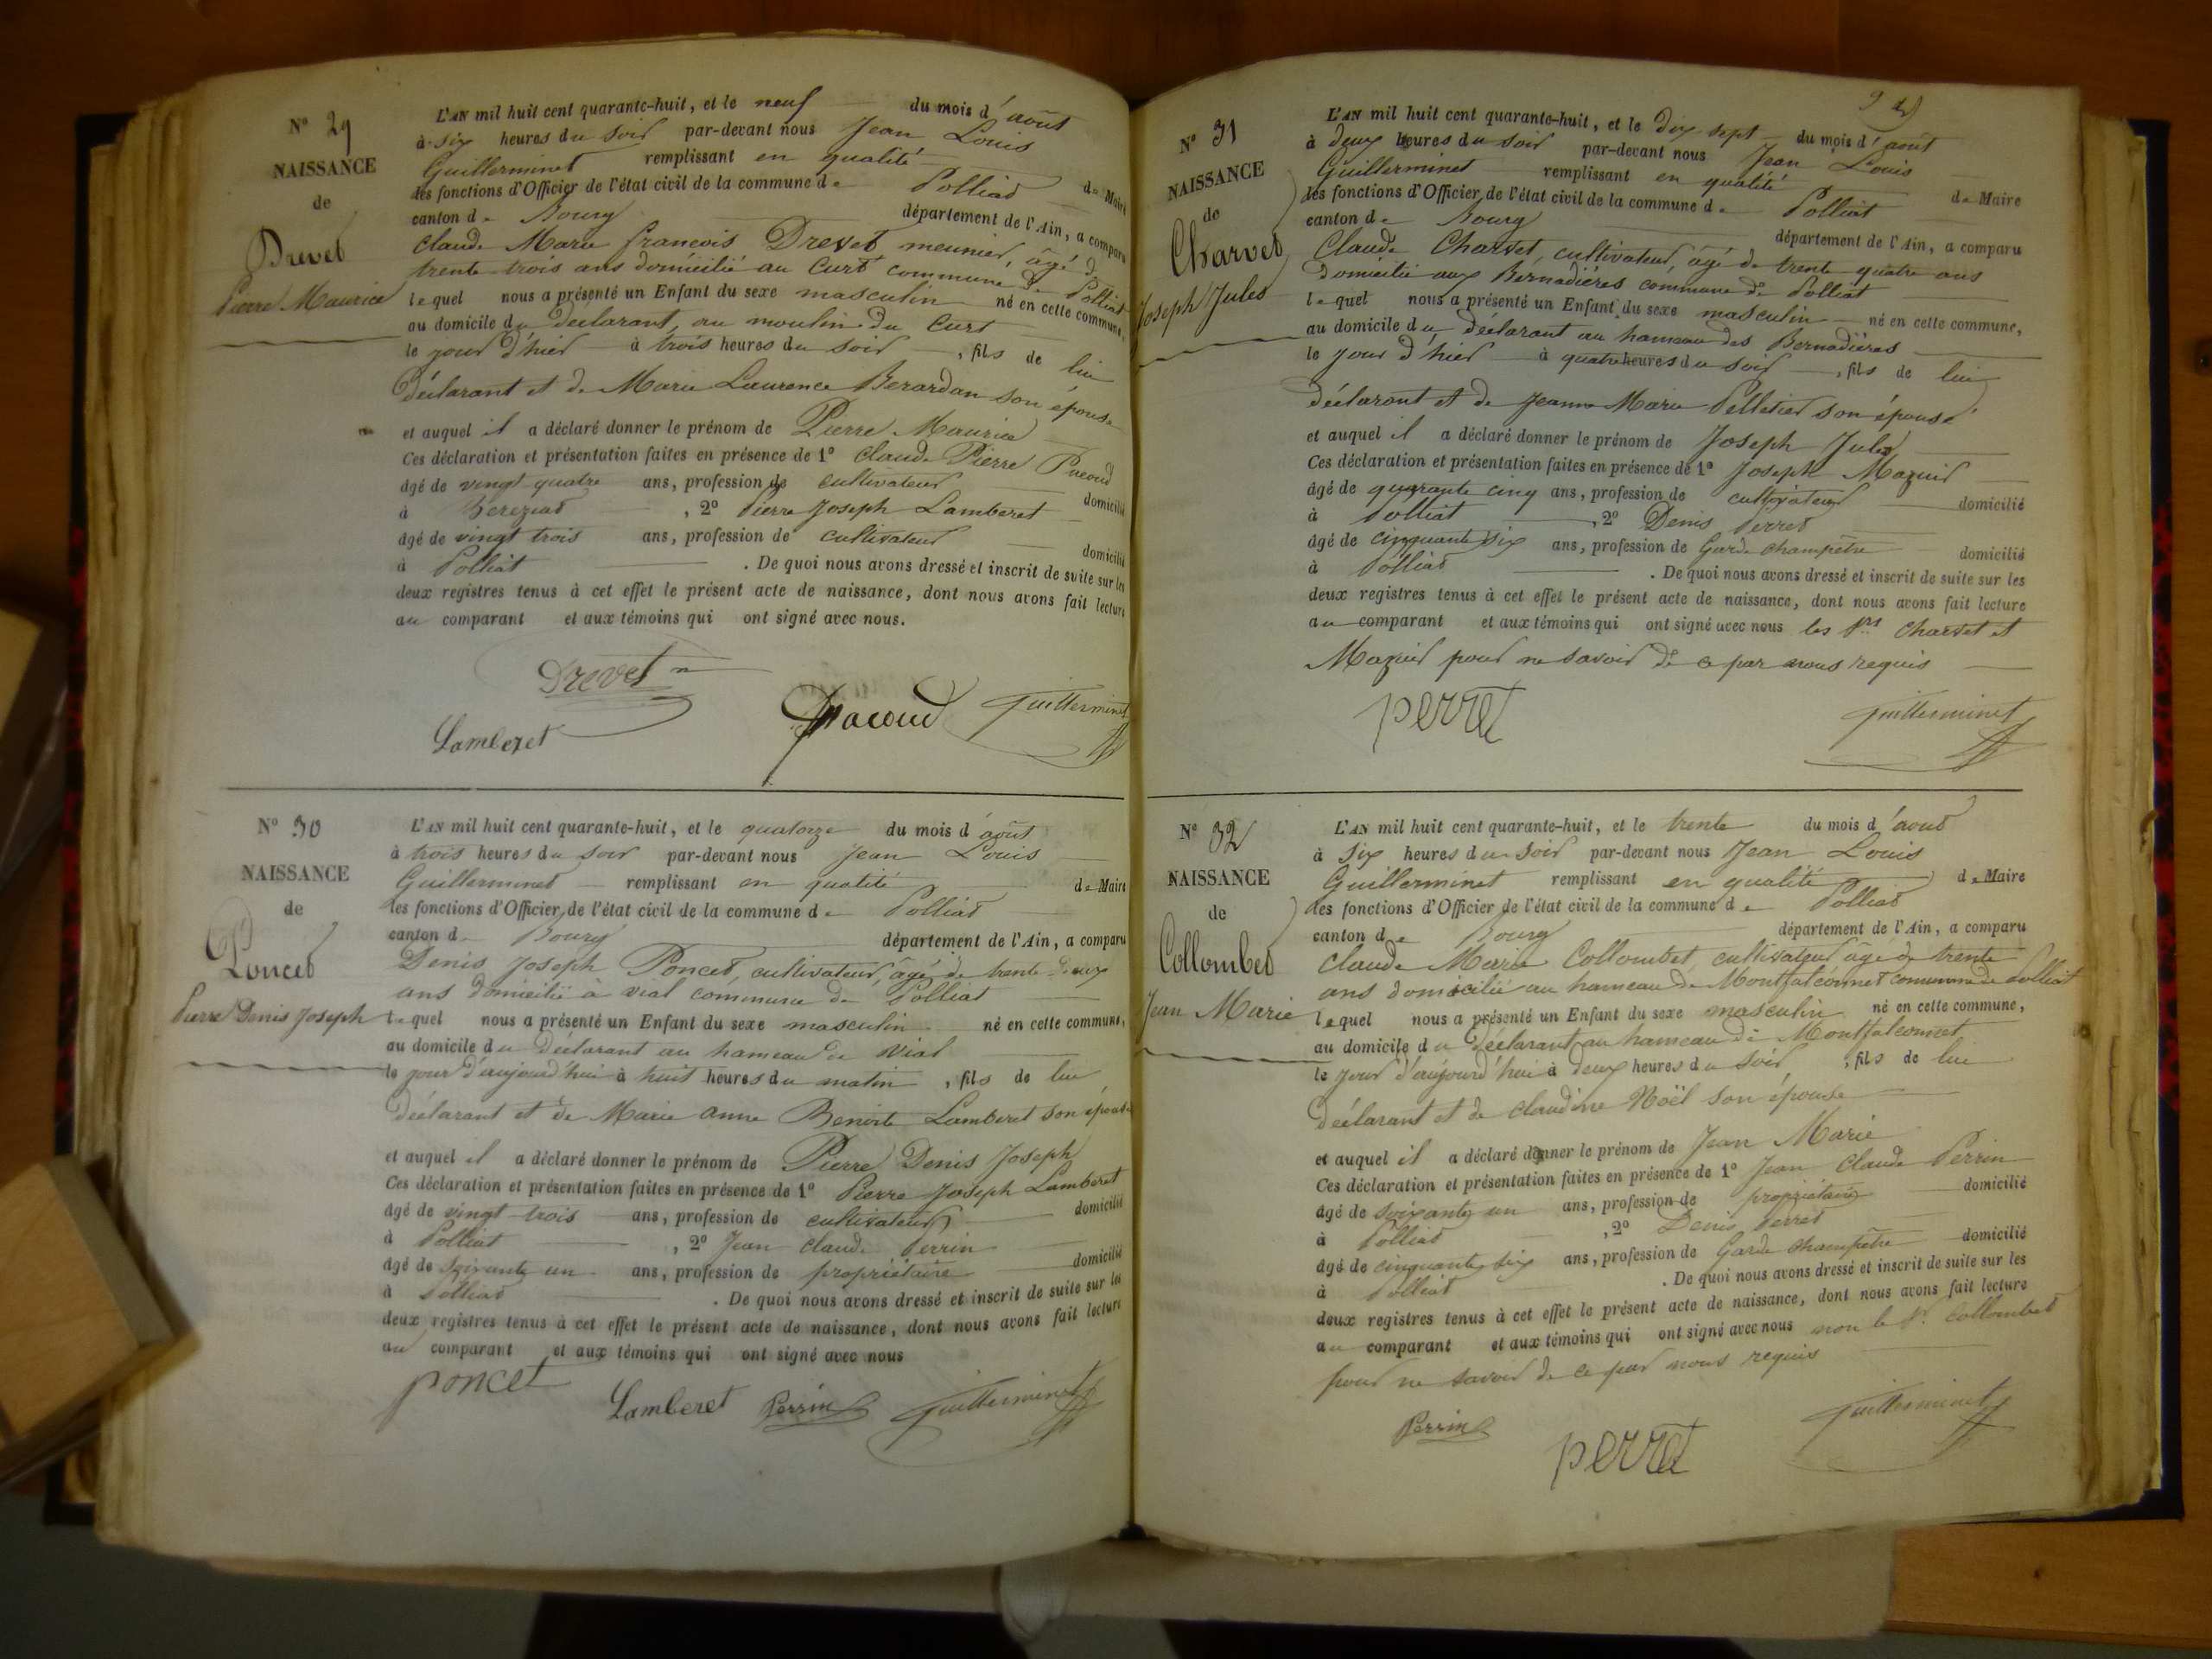 N° 29
NAISSANCE
de
Drevet
Pierre Maurice
L'AN mil huit cent quarante-huit, et le neuf du mois d'août
à six heures du soir par-devant nous Jean Louis
Guillerminet remplissant en qualité de Maire
les fonctions d'Officier de l'état civil de la commune de Polliat
canton de Bourg département de l'Ain, a comparu
Claude Marie francois Drevet meunier, âgé de
trente trois ans domicilié au Curt commune de Polliat
lequel nous a présenté un Enfant du sexe masculin né en cette commune,
au domicile du declarant, au moulin du Curt
le jour d'hier à trois heures du soir, fils de lui
déclarant et de Marie Laurence Berardan son épouse
et auquel il a déclaré donner le prénom de Pierre Maurice
Ces déclaration et présentation faites en présence de 1° Claude Pierre
âgé de vingt quatre ans, profession de cultivateur domicilié
à Bereziat, 2° Pierre Joseph Lamberet
âgé de vingt trois ans, profession de cultivateur domicilié
à Polliat. De quoi nous avons dressé et inscrit de suite sur les
deux registres tenus à cet effet le présent acte de naissance, dont nous avons fait lecture
au comparant et aux témoins qui ont signé avec nous.
Drevet
Lamberet
Guillerminet
N° 30
NAISSANCE
de
Poncet
Pierre Denis Joseph
L'AN mil huit cent quarante-huit, et le quatorze du mois d'août
à trois heures du soir par-devant nous Jean Louis
Guillerminet remplissant en qualité de Maire
les fonctions d'Officier de l'état civil de la commune de Polliat
canton de Bourg département de l'Ain, a comparu
Denis Joseph Poncet, cultivateur, âgé de trente deux
ans domicilié à vial commune de Polliat
lequel nous a présenté un Enfant du sexe masculin né en cette commune,
au domicile du déclarant au hameau de vial
le jour d'aujourd'hui à huit heures du matin, fils de lui
déclarant et de Marie anne Benoite Lamberet son épouse
et auquel il a déclaré donner le prénom de Pierre Denis Joseph
Ces déclaration et présentation faites en présence de 1° Pierre Joseph Lamberet
âgé de vingt trois ans, profession de cultivateur domicilié
à Polliat, 2° Jean claude Perrin
âgé de soixante un ans, profession de propriétaire domicilié
à Polliat. De quoi nous avons dressé et inscrit de suite sur les
deux registres tenus à cet effet le présent acte de naissance, dont nous avons fait lecture
au comparant et aux témoins qui ont signé avec nous
poncet
Lamberet Perrin Guillerminet
N° 31
NAISSANCE
de
Charvet
Joseph Jules
L'AN mil huit cent quarante-huit, et le dix sept du mois d'août
à deux heures du soir par-devant nous Jean Louis
Guillerminet remplissant en qualité de Maire
les fonctions d'Officier de l'état civil de la commune de Polliat
canton de Bourg département de l'Ain, a comparu
Claude Charvet, cultivateur, âgé de trente quatre ans
domicilié aux Bernadières commune de Polliat
lequel nous a présenté un Enfant du sexe masculin né en cette commune,
au domicile du déclarant au hameau des Bernadières
le jour d'hier à quatre heures du soir, fils de lui
déclarant et de Jeanne Marie Pelletier son épouse
et auquel il a déclaré donner le prénom de Joseph Jules
Ces déclaration et présentation faites en présence de 1° Joseph Mazuir
âgé de quarante cinq ans, profession de cultivateur domicilié
à Polliat, 2° Denis Perret
âgé de cinquante six ans, profession de Garde champêtre domicilié
à Polliat. De quoi nous avons dressé et inscrit de suite sur les
deux registres tenus à cet effet le présent acte de naissance, dont nous avons fait lecture
au comparant et aux témoins qui ont signé avec nous les Srs Charvet et
Mazuir pour ne savoir de ce par nous requis
perret
Guillerminet
N° 32
NAISSANCE
de
Collombet
Jean Marie
L'AN mil huit cent quarante-huit, et le trente du mois d'aout
à six heures du soir par-devant nous Jean Louis
Guillerminet remplissant en qualité de Maire
les fonctions d'Officier de l'état civil de la commune de Polliat
canton de Bourg département de l'Ain, a comparu
Claude Marie Collombet, cultivateur âgé de trente
ans domicilié au hameau de Montfalconnet commune de Polliat
lequel nous a présenté un Enfant du sexe masculin né en cette commune,
au domicile du déclarant au hameau de Montfalconnet
le jour d'aujourd'hui à deux heures du soir, fils de lui
déclarant et de claudine Noël son épouse
et auquel il a déclaré donner le prénom de Jean Marie
Ces déclaration et présentation faites en présence de 1° Jean Claude Perrin
âgé de soixante un ans, profession de propriétaire domicilié
à Polliat, 2° Denis Perret
âgé de cinquante six ans, profession de Garde champêtre domicilié
à Polliat. De quoi nous avons dressé et inscrit de suite sur les
deux registres tenus à cet effet le présent acte de naissance, dont nous avons fait lecture
au comparant et aux témoins qui ont signé avec nous non le Sr. Collombet
pour ne savoir de ce par nous requis
Perrin
perret
Guillerminet